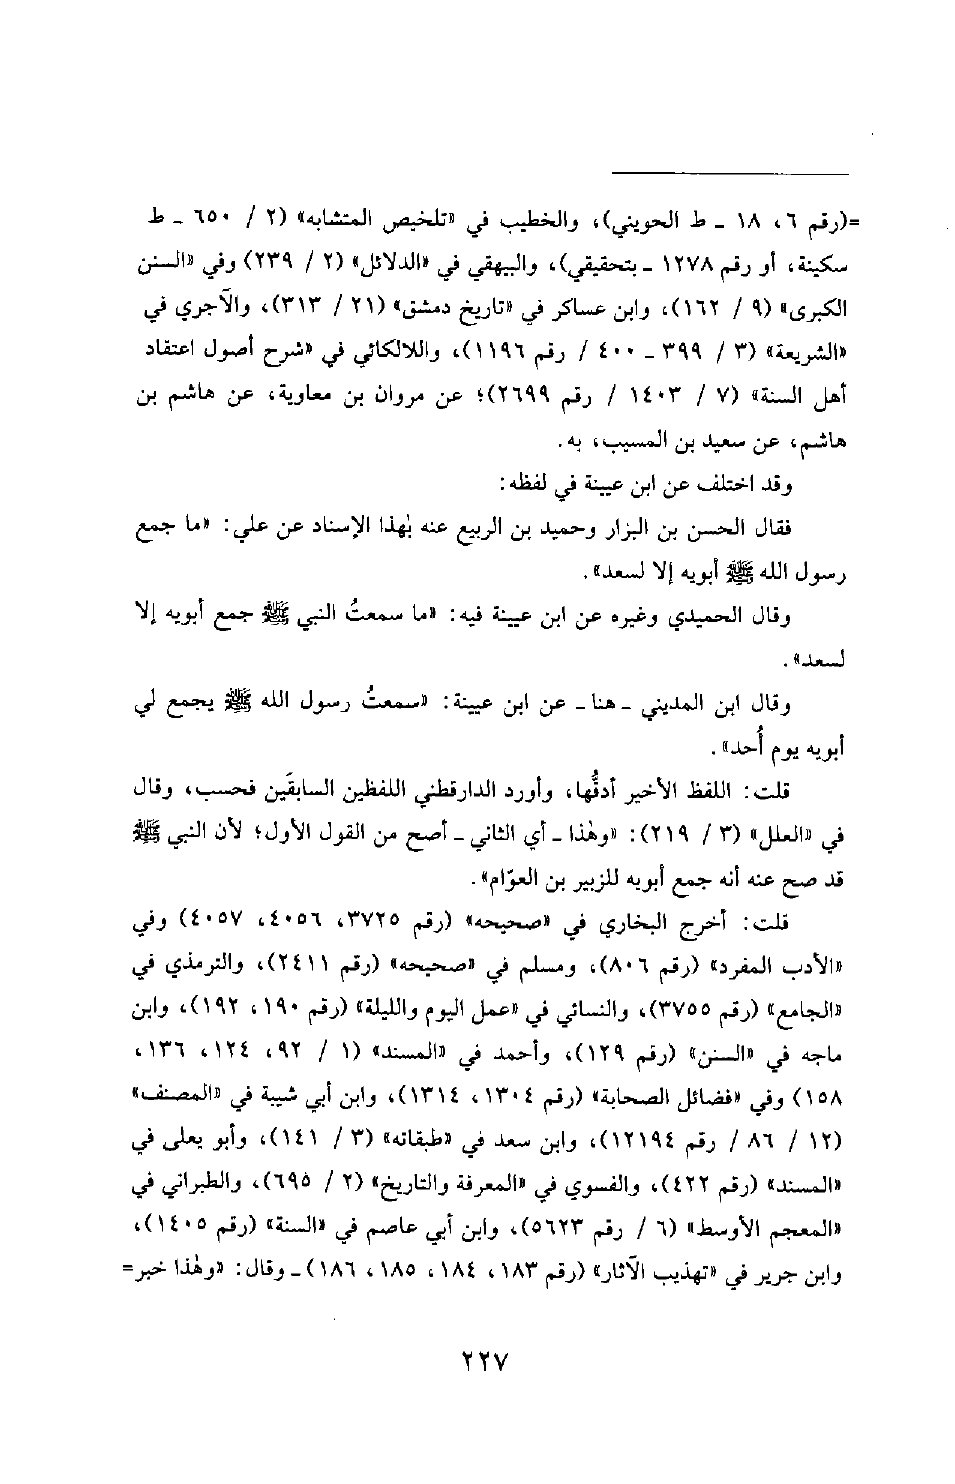 =(رقم ٦، ١٨ ـ ط الحويني)، والخطيب في «تلخيص المتشابه» (٢ / ٦٥٠ ـ ط
سكينة، أو رقم ١٢٧٨ ـ بتحقيقي)، والبيهقي في «الدلائل» (٢ / ٢٣٩) وفي «السنن
الكبرى» (٩ / ١٦٢)، وابن عساكر في «تاريخ دمشق» (٢١ / ٣١٣)، والآجري في
«الشريعة» (٣ / ٣٩٩ ـ ٤٠٠ / رقم ١١٩٦)، واللالكائي في «شرح أصول اعتقاد
أهل السنة» (٧ / ١٤٠٣ / رقم ٢٦٩٩)؛ عن مروان بن معاوية، عن هاشم بن
هاشم، عن سعيد بن المسيب، به.
وقد اختلف عن ابن عيينة في لفظه:
فقال الحسن بن البزار وحميد بن الربيع عنه بهٰذا الإسناد عن علي: «ما جمع
رسول الله ﷺ أبويه إلا لسعد».
وقال الحميدي وغيره عن ابن عيينة فيه: «ما سمعتُ النبي ﷺ جمع أبويه إلا
لسعد».
وقال ابن المديني ـ هنا ـ عن ابن عيينة: «سمعتُ رسول الله ﷺ يجمع لي
أبويه يوم أُحد».
قلت: اللفظ الأخير أدقُّها، وأورد الدارقطني اللفظين السابقَين فحسب، وقال
في «العلل» (٣ / ٢١٩): «وهٰذا ـ أي الثاني ـ أصح من القول الأول؛ لأن النبي ﷺ
قد صح عنه أنه جمع أبويه للزبير بن العوّام».
قلت: أخرج البخاري في «صحيحه» (رقم ٣٧٢٥، ٤٠٥٦، ٤٠٥٧) وفي
«الأدب المفرد» (رقم ٨٠٦)، ومسلم في «صحيحه» (رقم ٢٤١١)، والترمذي في
«الجامع» (رقم ٣٧٥٥)، والنسائي في «عمل اليوم والليلة» (رقم ١٩٠، ١٩٢)، وابن
ماجه في «السنن» (رقم ١٢٩)، وأحمد في «المسند» (١ / ٩٢، ١٢٤، ١٣٦،
١٥٨) وفي «فضائل الصحابة» (رقم ١٣٠٤، ١٣١٤)، وابن أبي شيبة في «المصنف»
(١٢ / ٨٦ / رقم ١٢١٩٤)، وابن سعد في «طبقاته» (٣ / ١٤١)، وأبو يعلى في
«المسند» (رقم ٤٢٢)، والفسوي في «المعرفة والتاريخ» (٢ / ٦٩٥)، والطبراني في
«المعجم الأوسط» (٦ / رقم ٥٦٢٣)، وابن أبي عاصم في «السنة» (رقم ١٤٠٥)،
وابن جرير في «تهذيب الآثار» (رقم ١٨٣، ١٨٤، ١٨٥، ١٨٦) ـ وقال: «وهٰذا خبر=
٢٢٧